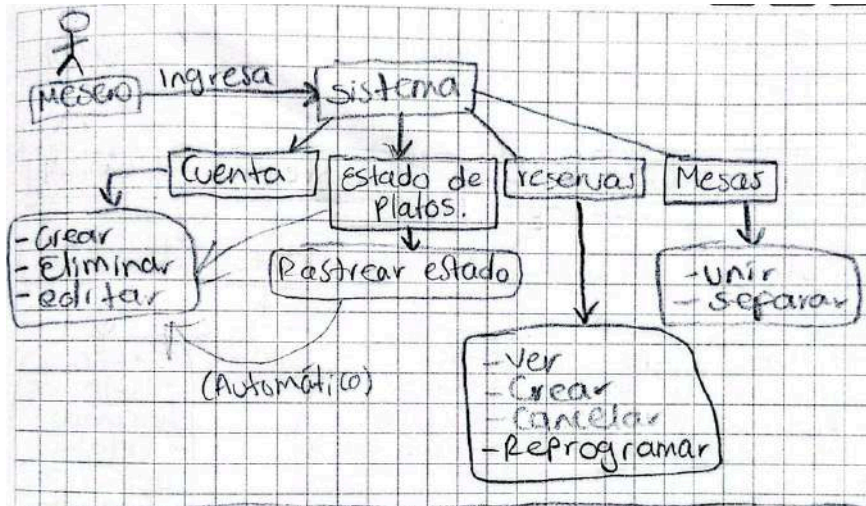 Mesero
Ingresa
Sistema
Cuenta
Estado de
Platos.
reservas
Mesas
- Crear
- Eliminar
- editar
Rastrear estado
- unir
- separar
(Automático)
- Ver
- Crear
- Cancelar
- Reprogramar